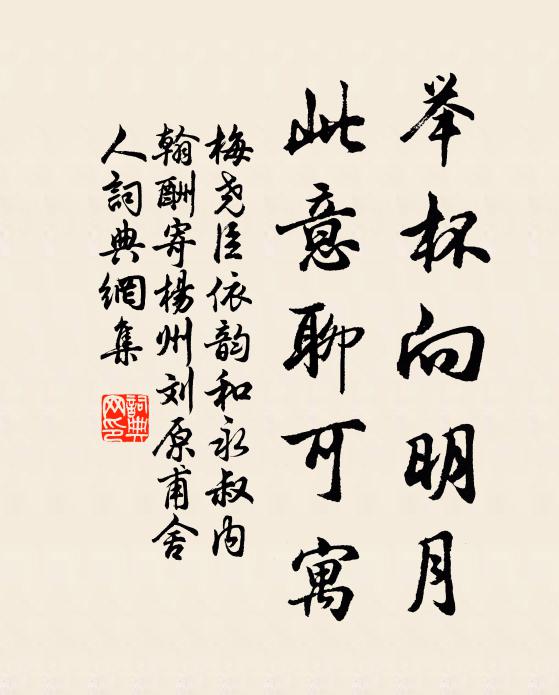 举杯向明月
此意聊可寓
梅尧臣依韵和永叔内
翰酬寄楊州刘原甫舍
人詞典網集
詞典网印